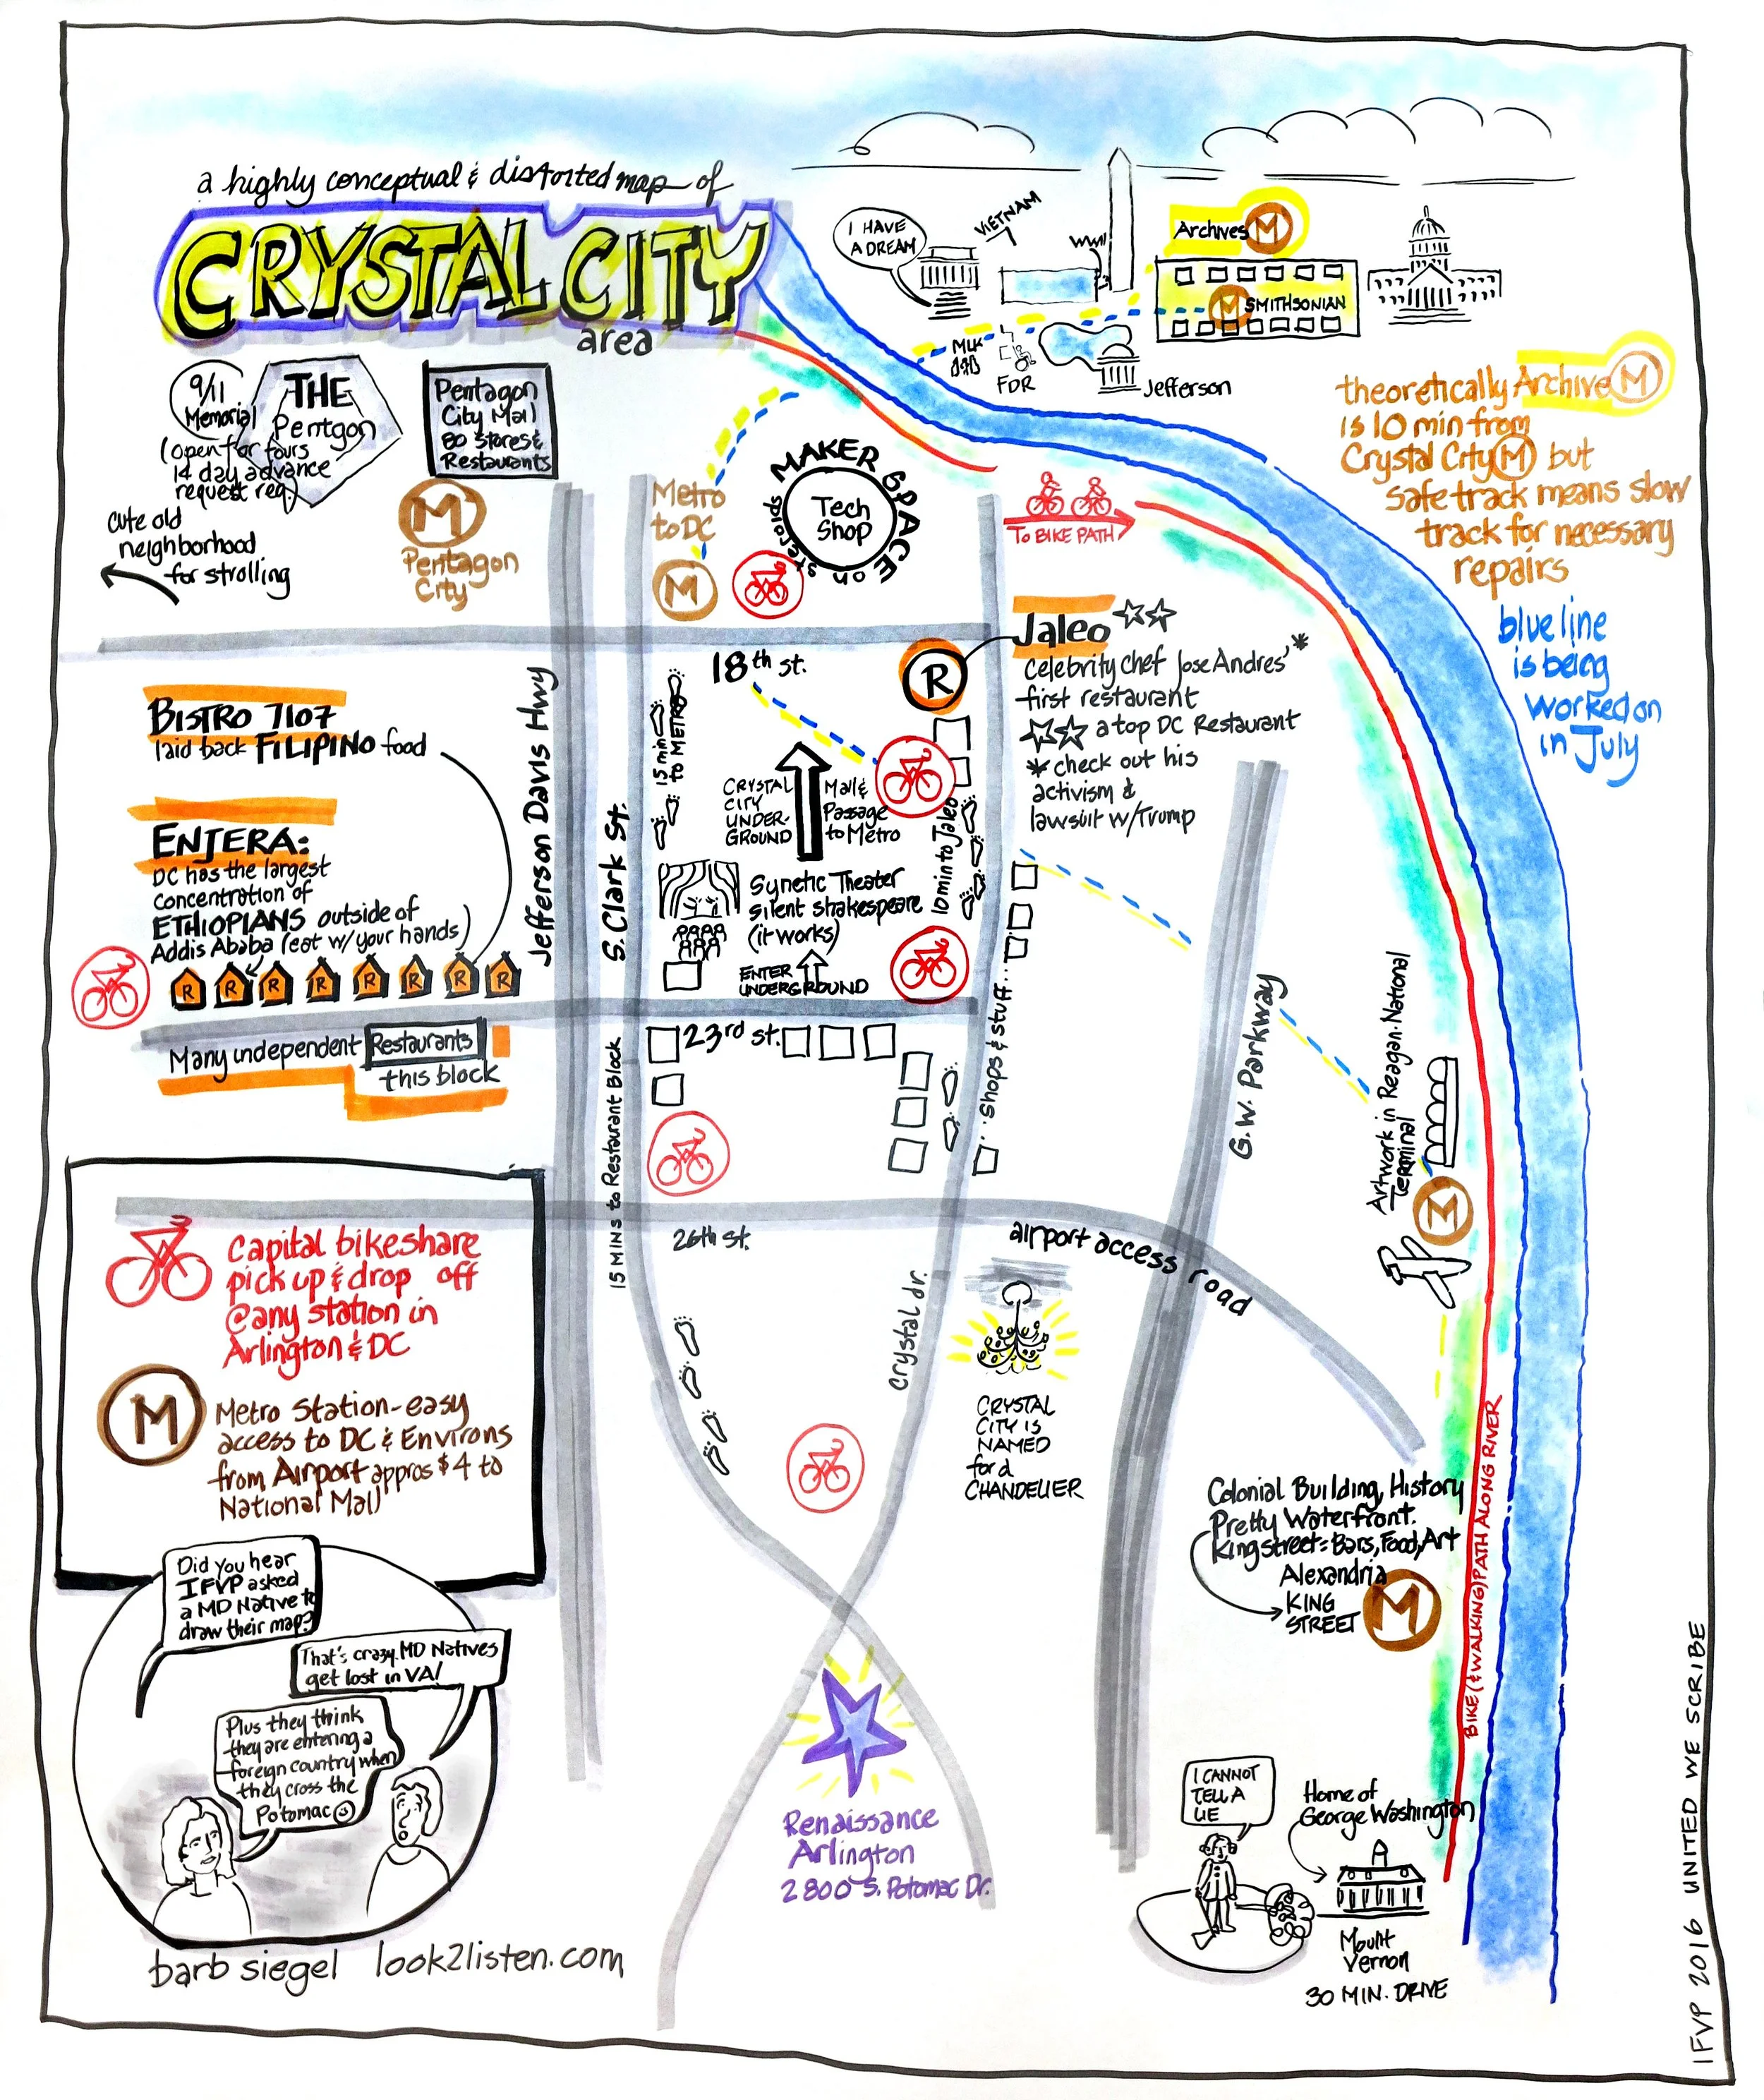 a highly conceptual & distorted map of
CRYSTAL CITY
area
I HAVE
A DREAM
VIETNAM
WWII
Archives M
M SMITHSONIAN
MLK
FDR
Jefferson
9/11
Memorial
(open for tours
14 day advance
request req.)
THE
Pentgon
Pentagon
City Mall
80 stores &
Restaurants
M
Pentagon
City
cute old
neighborhood
for strolling
Metro
to DC
M
MAKER SPACE on steroids
Tech
Shop
TO BIKE PATH
theoretically Archive M
is 10 min from
Crystal City M but
safe track means slow
track for necessary
repairs
blue line
is being
worked on
in July
18th st.
R
Jaleo
celebrity chef Jose Andres' *
first restaurant
a top DC Restaurant
* check out his
activism &
lawsuit w/Trump
BISTRO 7107
laid back FILIPINO food
ENJERA:
DC has the largest
concentration of
ETHIOPIANS outside of
Addis Ababa (eat w/your hands)
R R R R R R R R
Many independent Restaurants
this block
Jefferson Davis Hwy
S. Clark St.
15 min
to METRO
CRYSTAL
CITY
UNDER-
GROUND
Mall &
Passage
to Metro
10 min to Jaleo
Synetic Theater
silent shakespeare
(it works)
ENTER
UNDERGROUND
23rd st.
...shops & stuff...
G.W. Parkway
Artwork in Reagan-National
Terminal
M
15 MINS to Restaurant Block
26th st.
airport access road
crystal dr.
CRYSTAL
CITY IS
NAMED
for a
CHANDELIER
Capital bikeshare
pick up & drop off
@any station in
Arlington & DC
M
Metro Station-easy
access to DC & Environs
from Airport appros $4 to
National Mall
Colonial Building, History
Pretty Waterfront.
King street= Bars, Food, Art
Alexandria
KING
STREET
M
BIKE (& WALKING) PATH ALONG RIVER
Did you hear
IFVP asked
a MD Native to
draw their map?
That's crazy. MD Natives
get lost in VA!
Plus they think
they are entering a
foreign country when
they cross the
Potomac
Renaissance
Arlington
2800 S. Potomac Dr.
I CANNOT
TELL A
LIE
Home of
George Washington
Mount
Vernon
30 MIN. DRIVE
barb siegel look2listen.com
IFVP 2016 UNITED WE SCRIBE